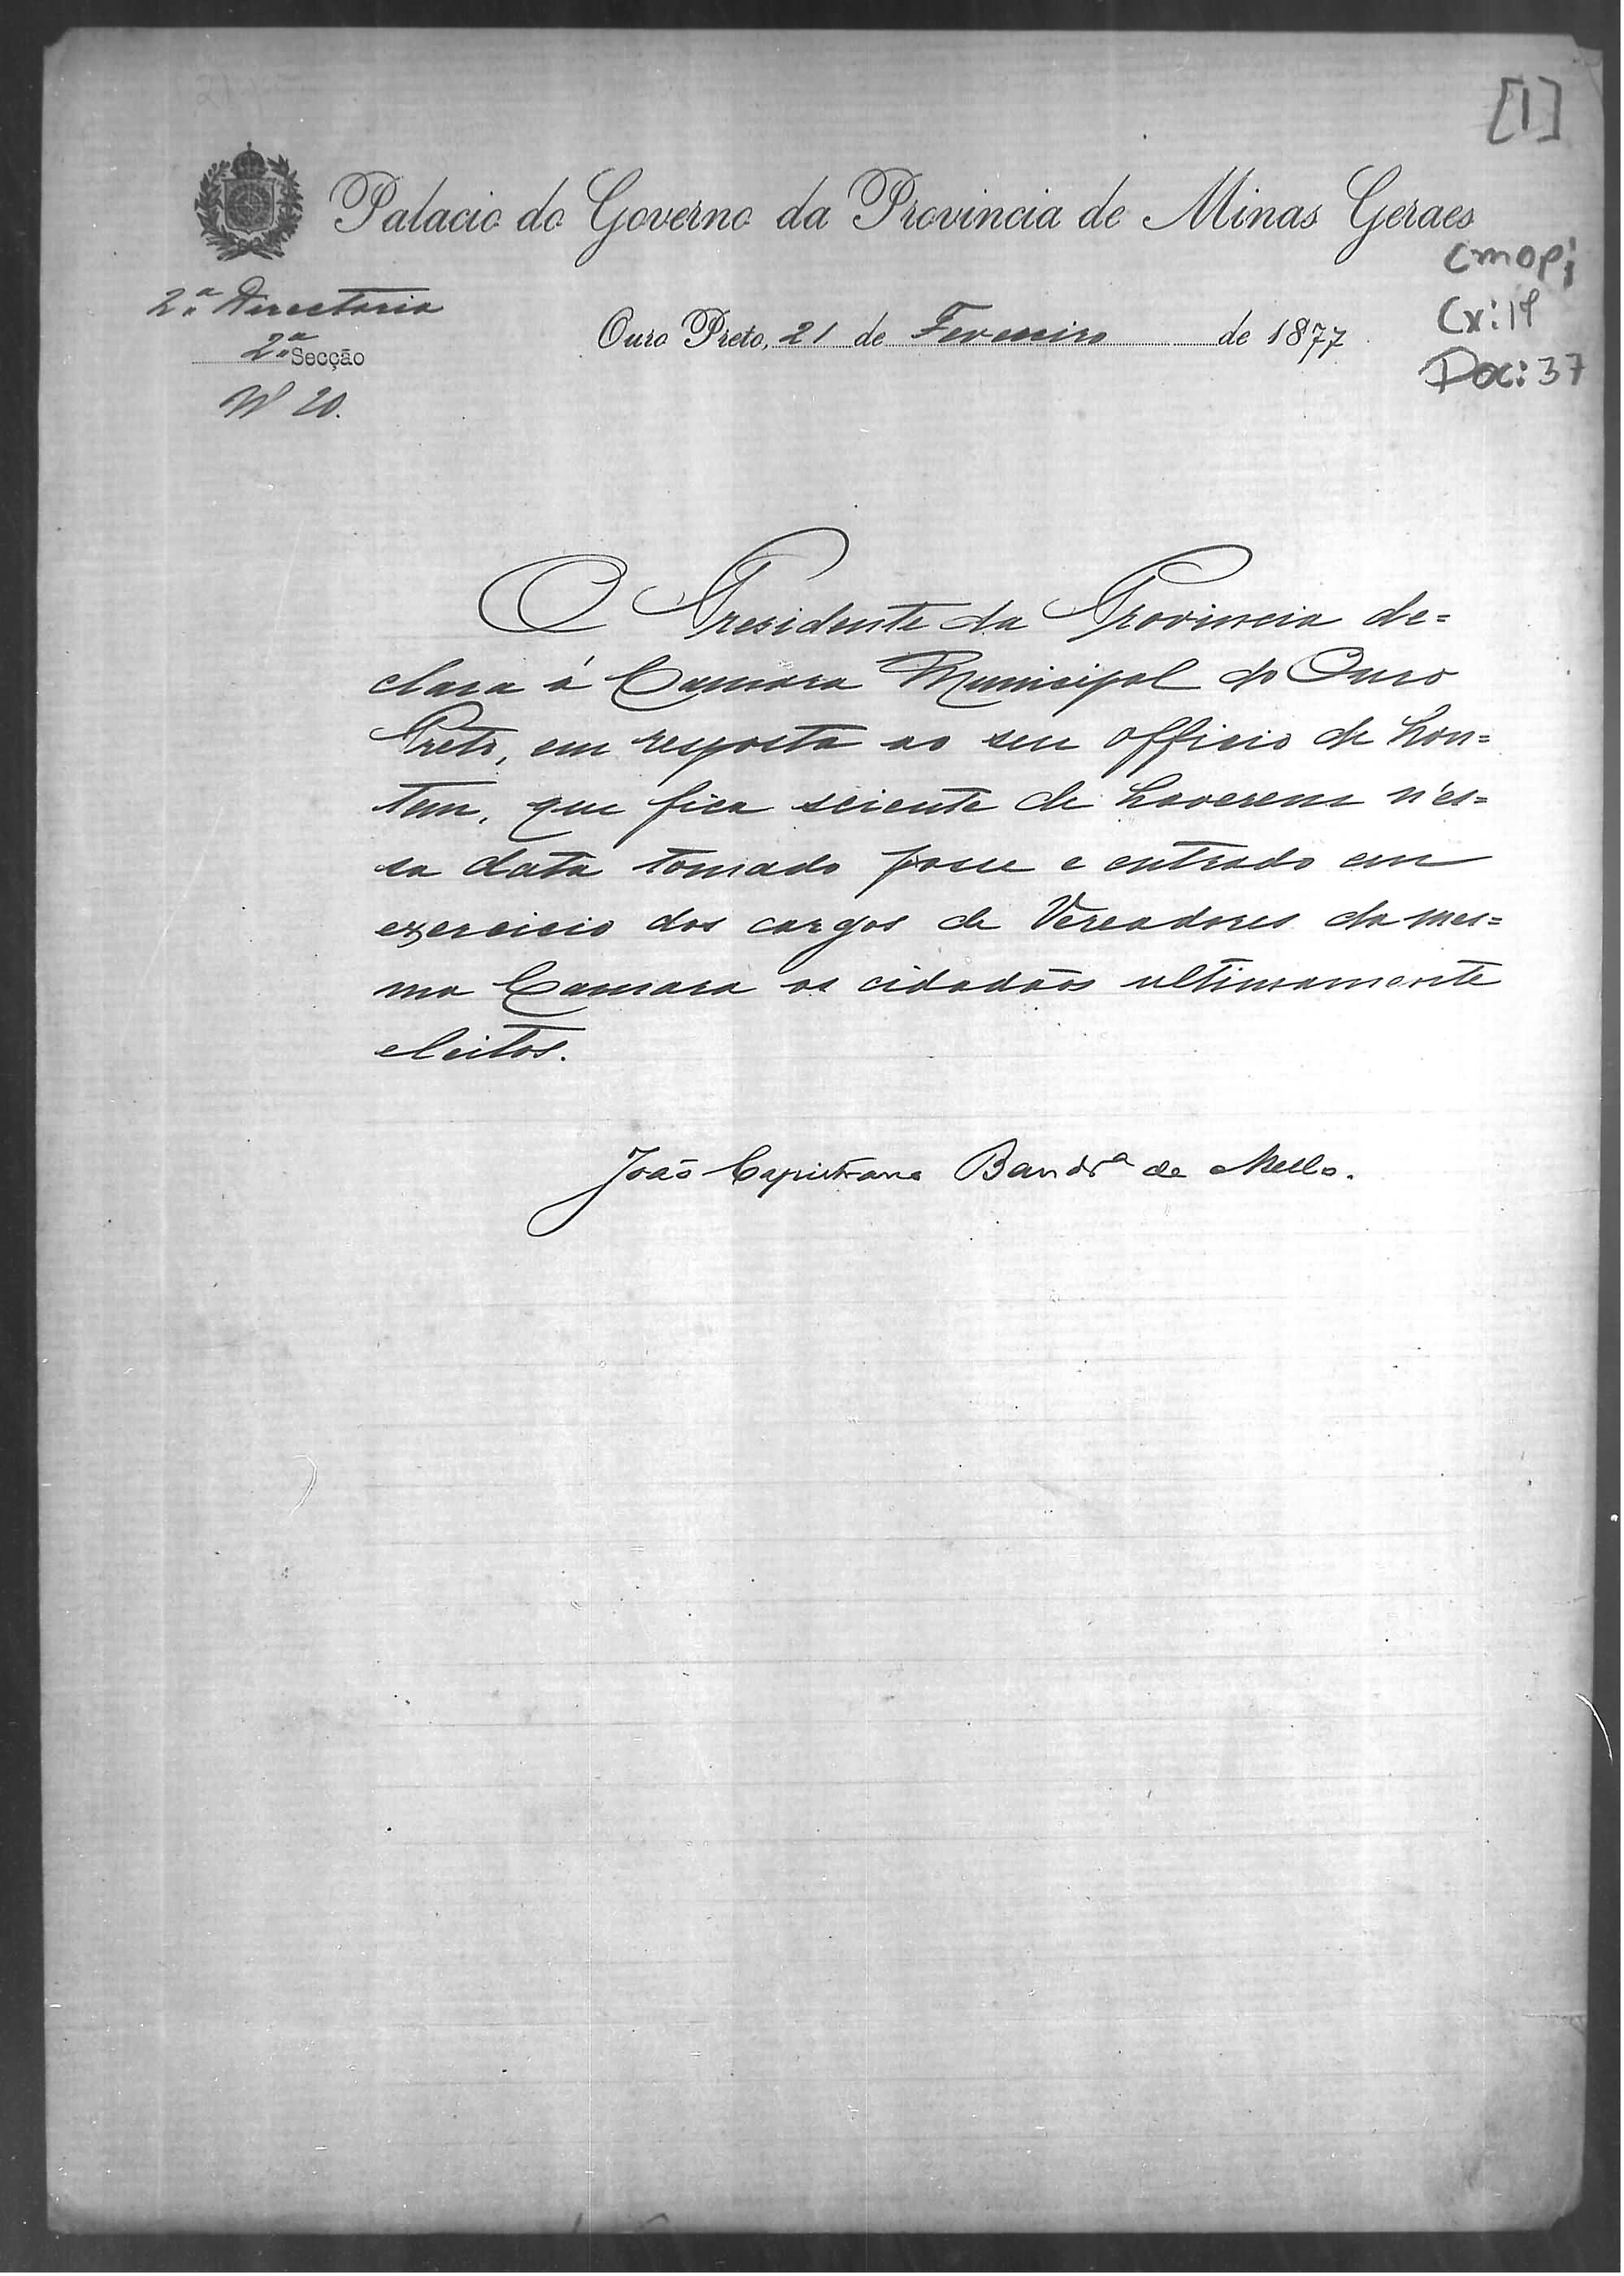 [1]
Palacio do Governo da Provincia de Minas Geraes
CMOP;
Cx: 19
Doc: 37
2ª Directoria
2ª Secção
Nº 20.
Ouro Preto, 21 de Fevereiro de 1877
O Presidente da Provincia de=
clara á Camara Municipal do Ouro
Preto, em resposta ao seu officio de hon=
tem, que fica sciente de haverem n'es=
sa data tomado posse e entrado em
exercicio dos cargos de Vereadores da mes=
ma Camara os cidadãos ultimamente
eleitos.
João Capistrano Bandrª de Mello.